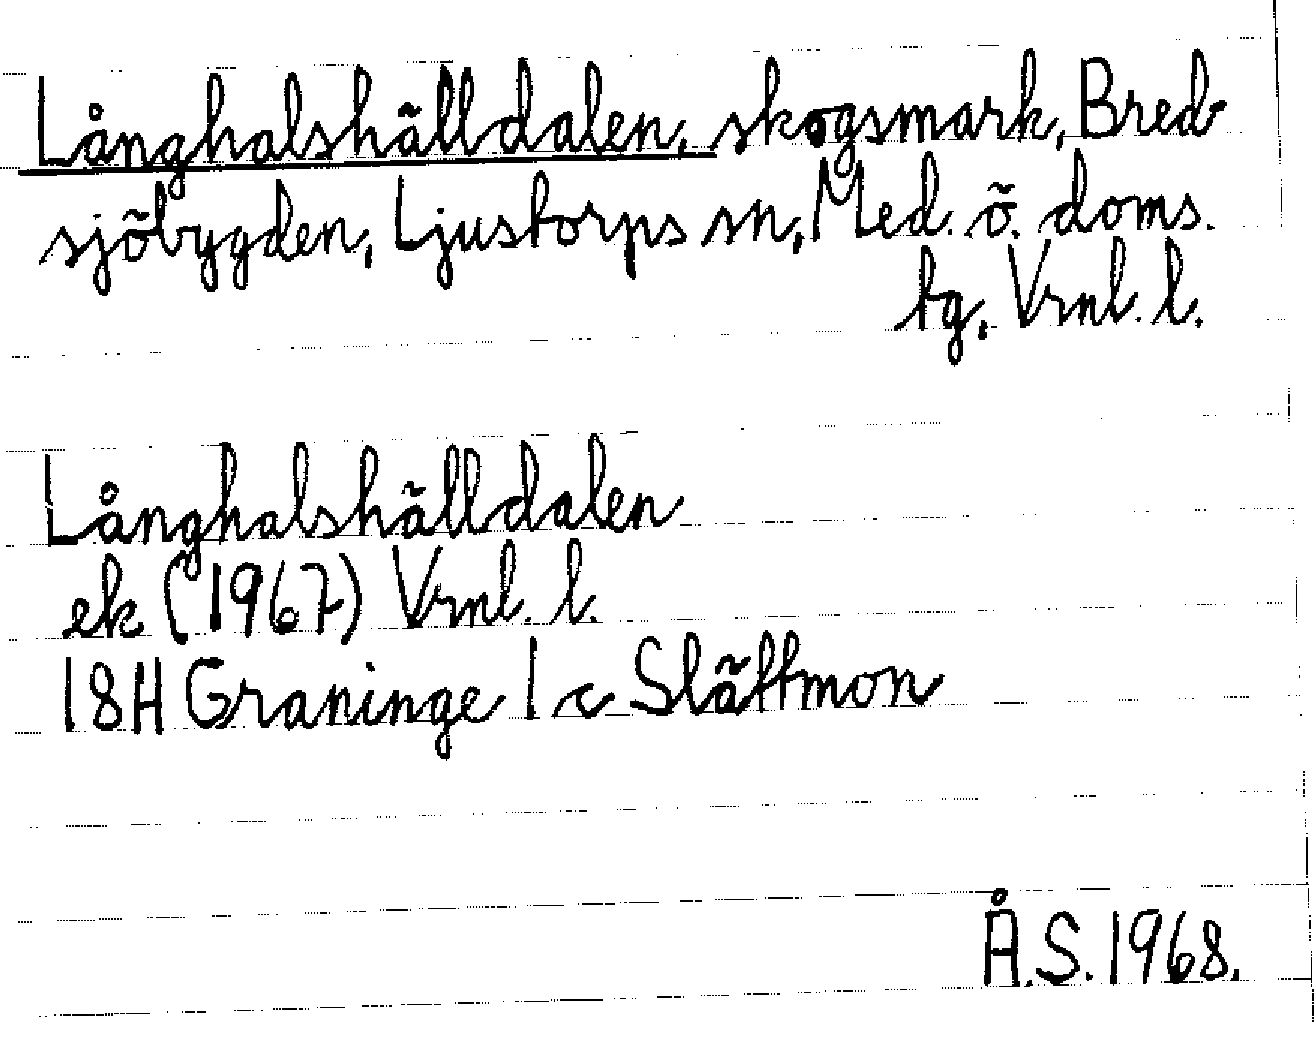 Långhalshälldalen, skogsmark, Bred-
sjöbygden, Ljustorps sn, Med. ö. doms.
tg. Vrnl. l.
Långhalshälldalen
ek (1967) Vrnl. l.
18H Graninge 1 c Slättmon
Å.S. 1968.